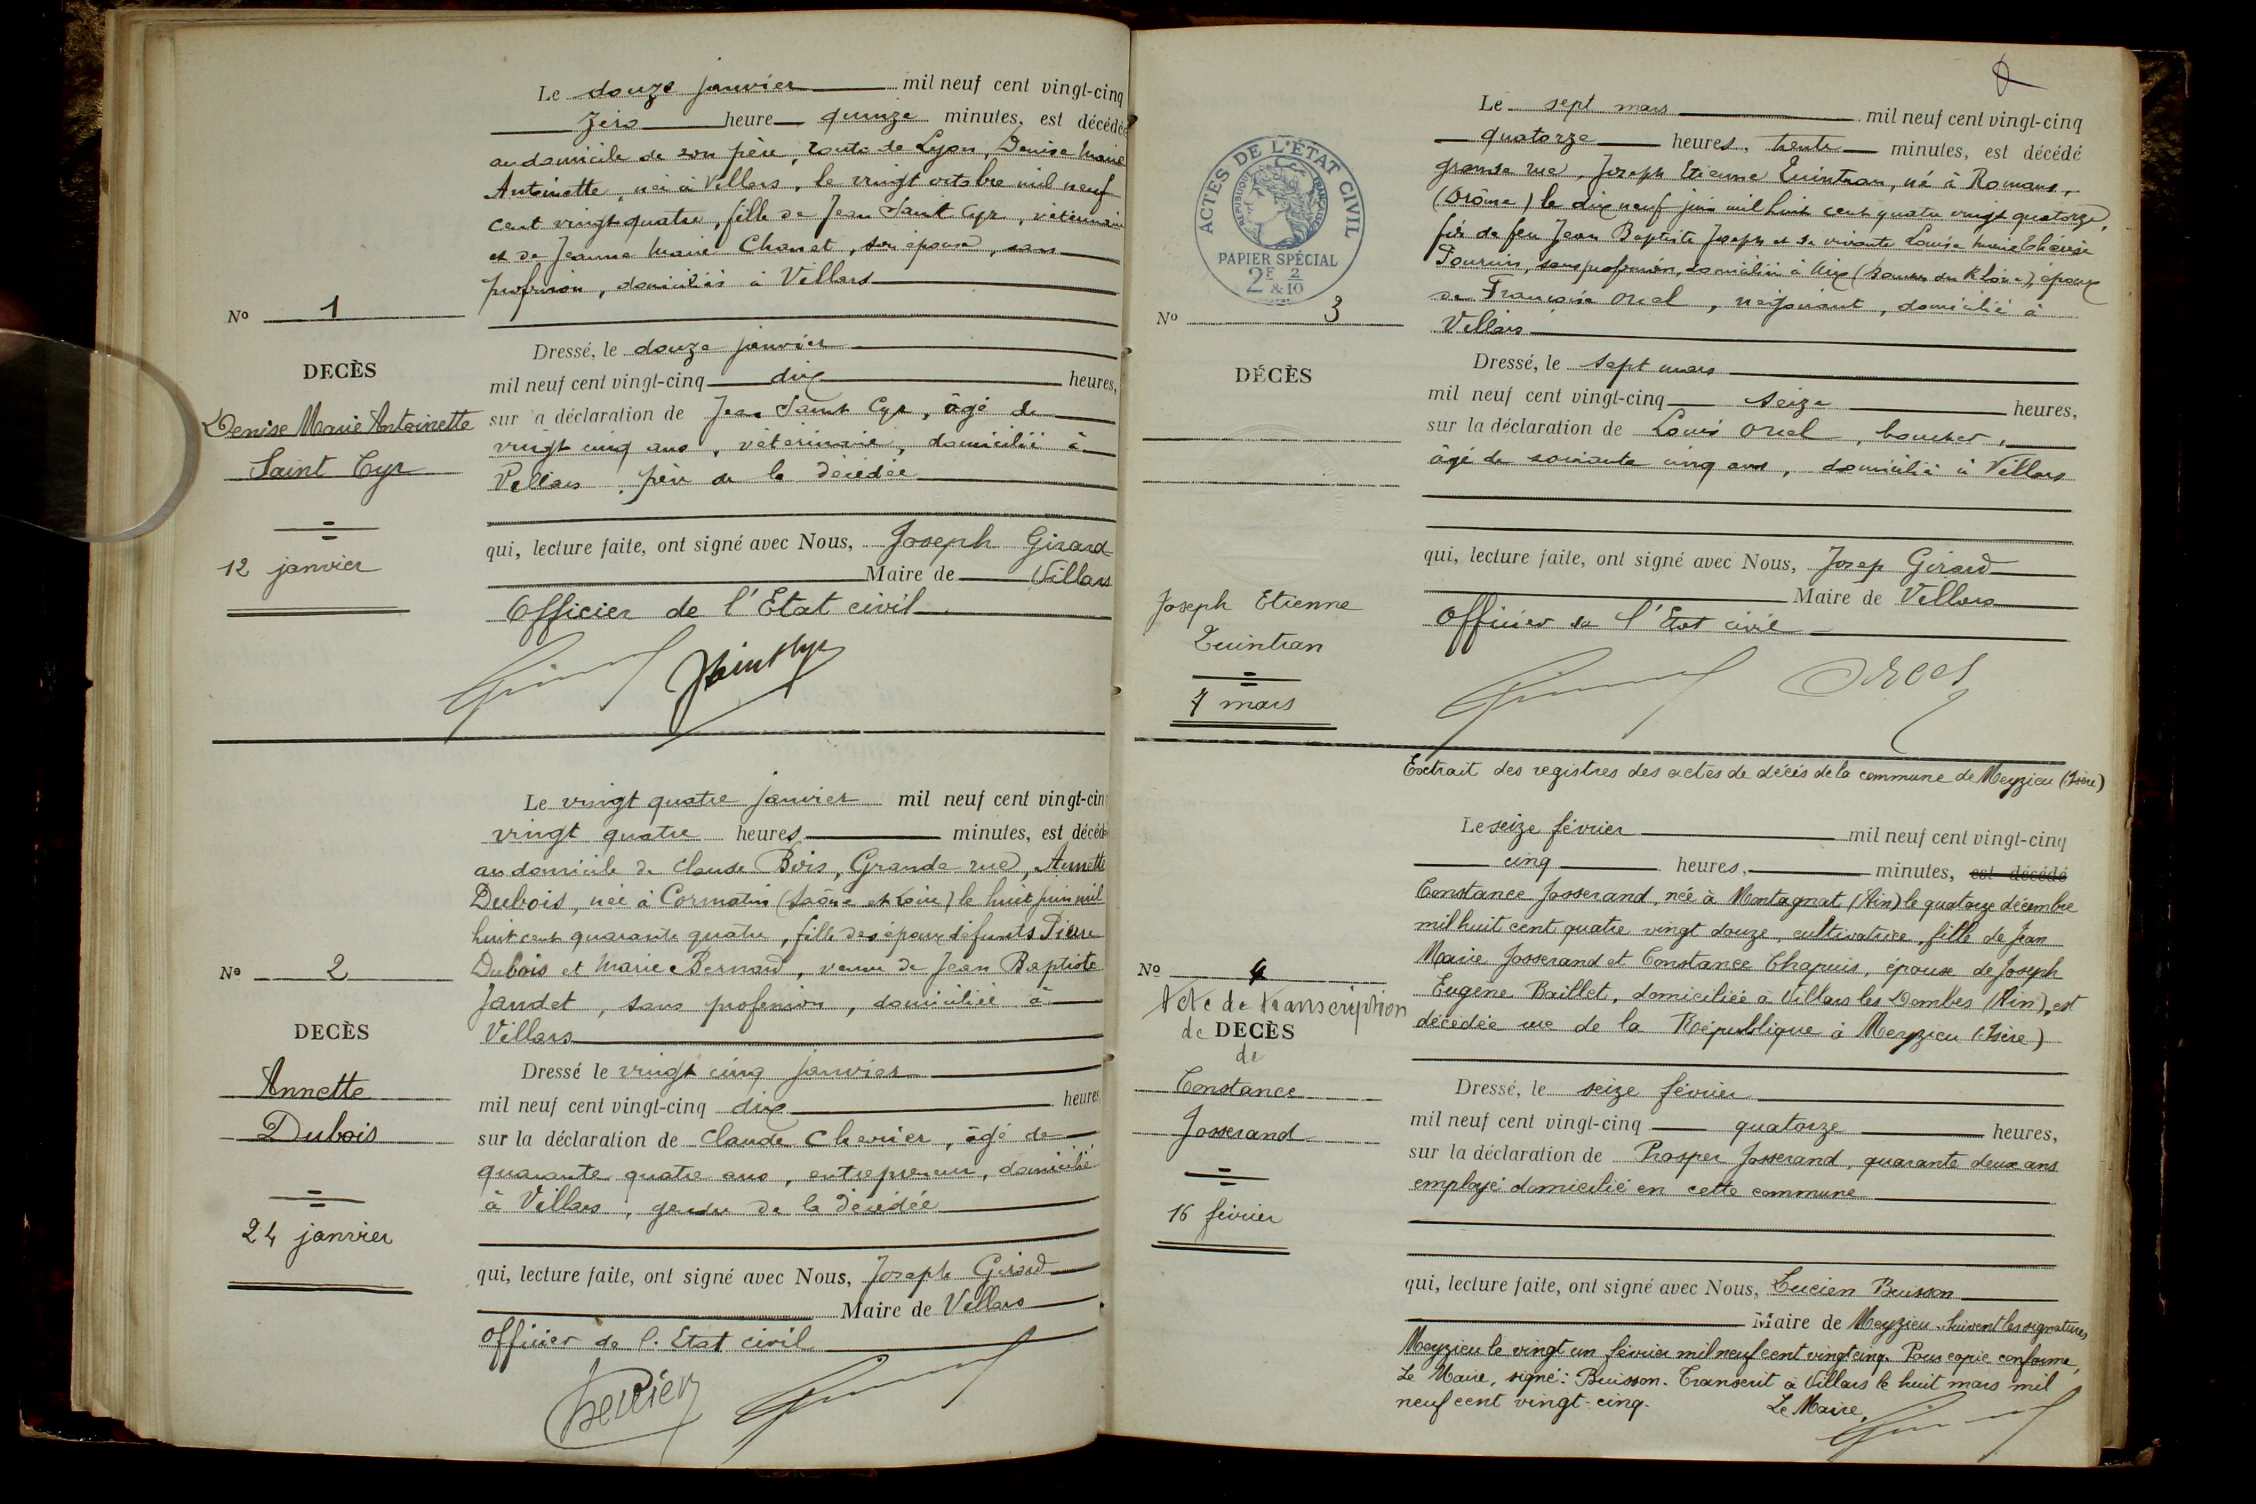 Le douze janvier mil neuf cent vingt-cinq
zéro heure quinze minutes, est décédée
au domicile de son père, route de Lyon, Denise Marie
Antoinette, née à Villars, le vingt octobre mil neuf
cent vingt-quatre, fille de Jean Saint Cyr, vétérinaire
et de Jeanne Marie Chanet, son épouse, sans
profession, domiciliés à Villars
No 1
DECÈS
Denise Marie Antoinette
Saint Cyr
12 janvier
Dressé, le douze janvier
mil neuf cent vingt-cinq dix heures,
sur a déclaration de Jean Saint Cyr, âgé de
vingt cinq ans, vétérinaire, domicilié à
Villars, père de la décédée
qui, lecture faite, ont signé avec Nous, Joseph Girard
Maire de Villars
Officier de l'Etat civil
JSaint Cyr
Le vingt quatre janvier mil neuf cent vingt-cinq
vingt quatre heures minutes, est décédé
au domicile de Claude Bois, Grande rue, Annette
Dubois, née à Cormatin (Saône et Loire) le huit juin mil
huit cent quarante quatre, fille des époux défunts Pierre
Dubois et Marie Bernard, veuve de Jean Baptiste
Jandet, sans profession, domiciliée à
Villars
No 2
DECÈS
Annette
Dubois
24 janvier
Dressé le vingt cinq janvier
mil neuf cent vingt-cinq dix heures
sur la déclaration de Claude Chevrier, âgé de
quarante quatre ans, entrepreneur, domicilié
à Villars, gendre de la décédée
qui, lecture faite, ont signé avec Nous, Joseph Girard
Maire de Villars
officier de l'Etat civil
Chevrier
Le sept mars mil neuf cent vingt-cinq
quatorze heures, trente minutes, est décédé
grande rue, Joseph Etienne Quintran, né à Romans,
(Drôme) le dix neuf juin mil huit cent quatre vingt quatorze,
fils de feu Jean Baptiste Joseph et de vivante Louise Marie Thérèse
sans profession, domiciliée à Aix (Bouches du Rhône), époux
de Françoise Orcel, négociant, domicilié à
Villars
ACTES DE L'ÉTAT CIVIL
RÉPUBLIQUE FRANÇAISE
PAPIER SPÉCIAL
2F & 2/10
No 3
DÉCÈS
Joseph Etienne
Quintran
7 mars
Dressé, le sept mars
mil neuf cent vingt-cinq seize heures,
sur la déclaration de Louis Orcel, boucher,
âgé de soixante cinq ans, domicilié à Villars
qui, lecture faite, ont signé avec Nous, Josep Girard
Maire de Villars
officier de l'Etat civil
Orcel
Extrait des registres des actes de décès de la commune de Meyzieu (Isère)
Le seize février mil neuf cent vingt-cinq
cinq heures, minutes, est décédé
Constance Josserand, née à Montagnat (Ain) le quatorze décembre
mil huit cent quatre vingt douze, cultivatrice, fille de Jean
Marie Josserand et Constance Chapuis, épouse de Joseph
Eugène Baillet, domiciliée à Villars les Dombes (Ain), est
décédée rue de la République à Meyzieu (Isère)
No 4
Acte de transcription
de DECÈS
de
Constance
Josserand
16 février
Dressé, le seize février
mil neuf cent vingt-cinq quatorze heures,
sur la déclaration de Prosper Josserand, quarante deux ans
employé domicilié en cette commune
qui, lecture faite, ont signé avec Nous, Lucien Buisson
Maire de Meyzieu. Suivent les signatures
Meyzieu le vingt un février mil neuf cent vingt cinq. Pour copie conforme,
Le Maire, signé: Buisson. Transcrit à Villars le huit mars mil
neuf cent vingt-cinq. Le Maire,